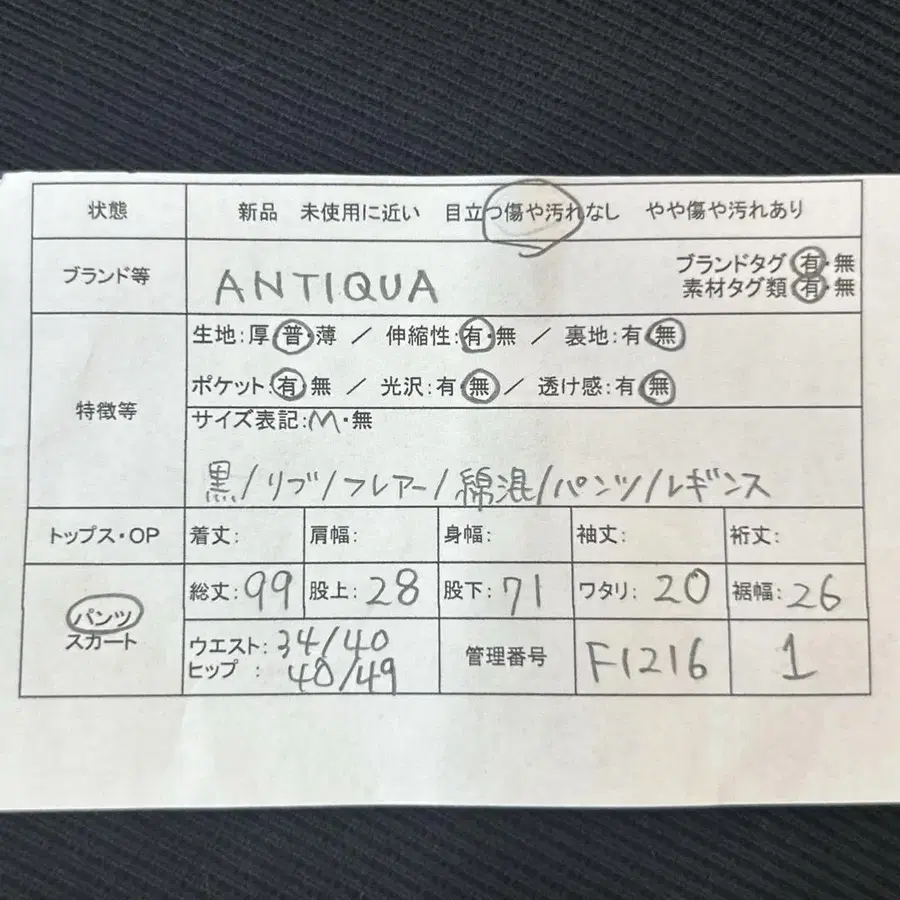 状態 新品 未使用に近い 目立つ傷や汚れなし やや傷や汚れあり
ブランド等 ANTIQUA ブランドタグ 有・無
素材タグ類 有・無
生地:厚・普・薄 / 伸縮性:有・無 / 裏地:有・無
ポケット:有・無 / 光沢:有・無 / 透け感:有・無
特徴等
サイズ表記:M・無
黒/リブ/フレアー/綿混/パンツ/レギンス
トップス・OP 着丈: 肩幅: 身幅: 袖丈: 裄丈:
総丈:99 股上:28 股下:71 ワタリ:20 裾幅:26
パンツ
スカート
ウエスト:34/40
ヒップ:40/49
管理番号 F1216 1